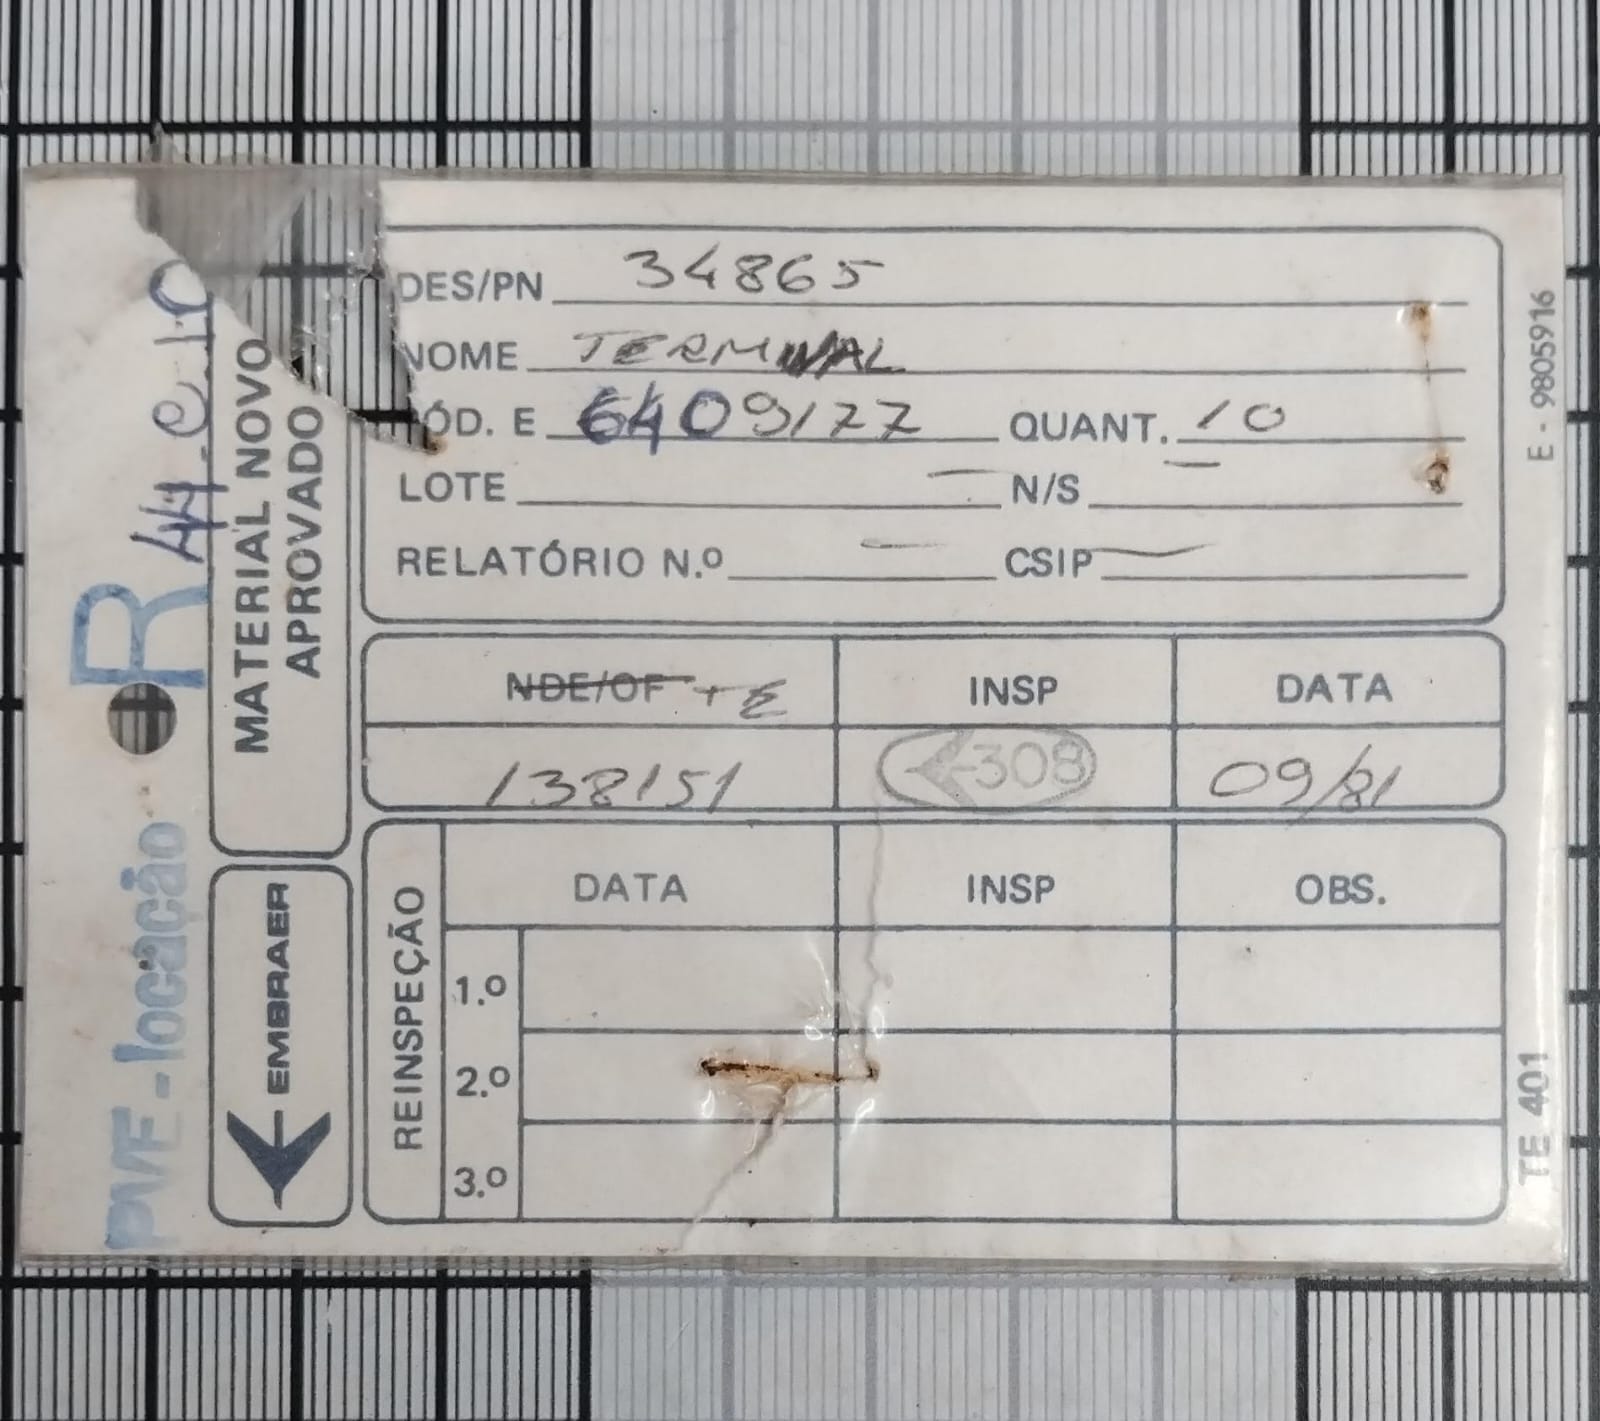 DES/PN 34865
NOME TERMINAL
ÓD. E 6409177 QUANT. 10
LOTE — N/S —
RELATÓRIO N.º — CSIP —
NDE/OF TE INSP DATA
138151 308 09/81
REINSPEÇÃO
DATA INSP OBS.
1.º
2.º
3.º
MATERIAL NOVO
APROVADO
EMBRAER
R
PVF - locação
E - 9805916
TE 401